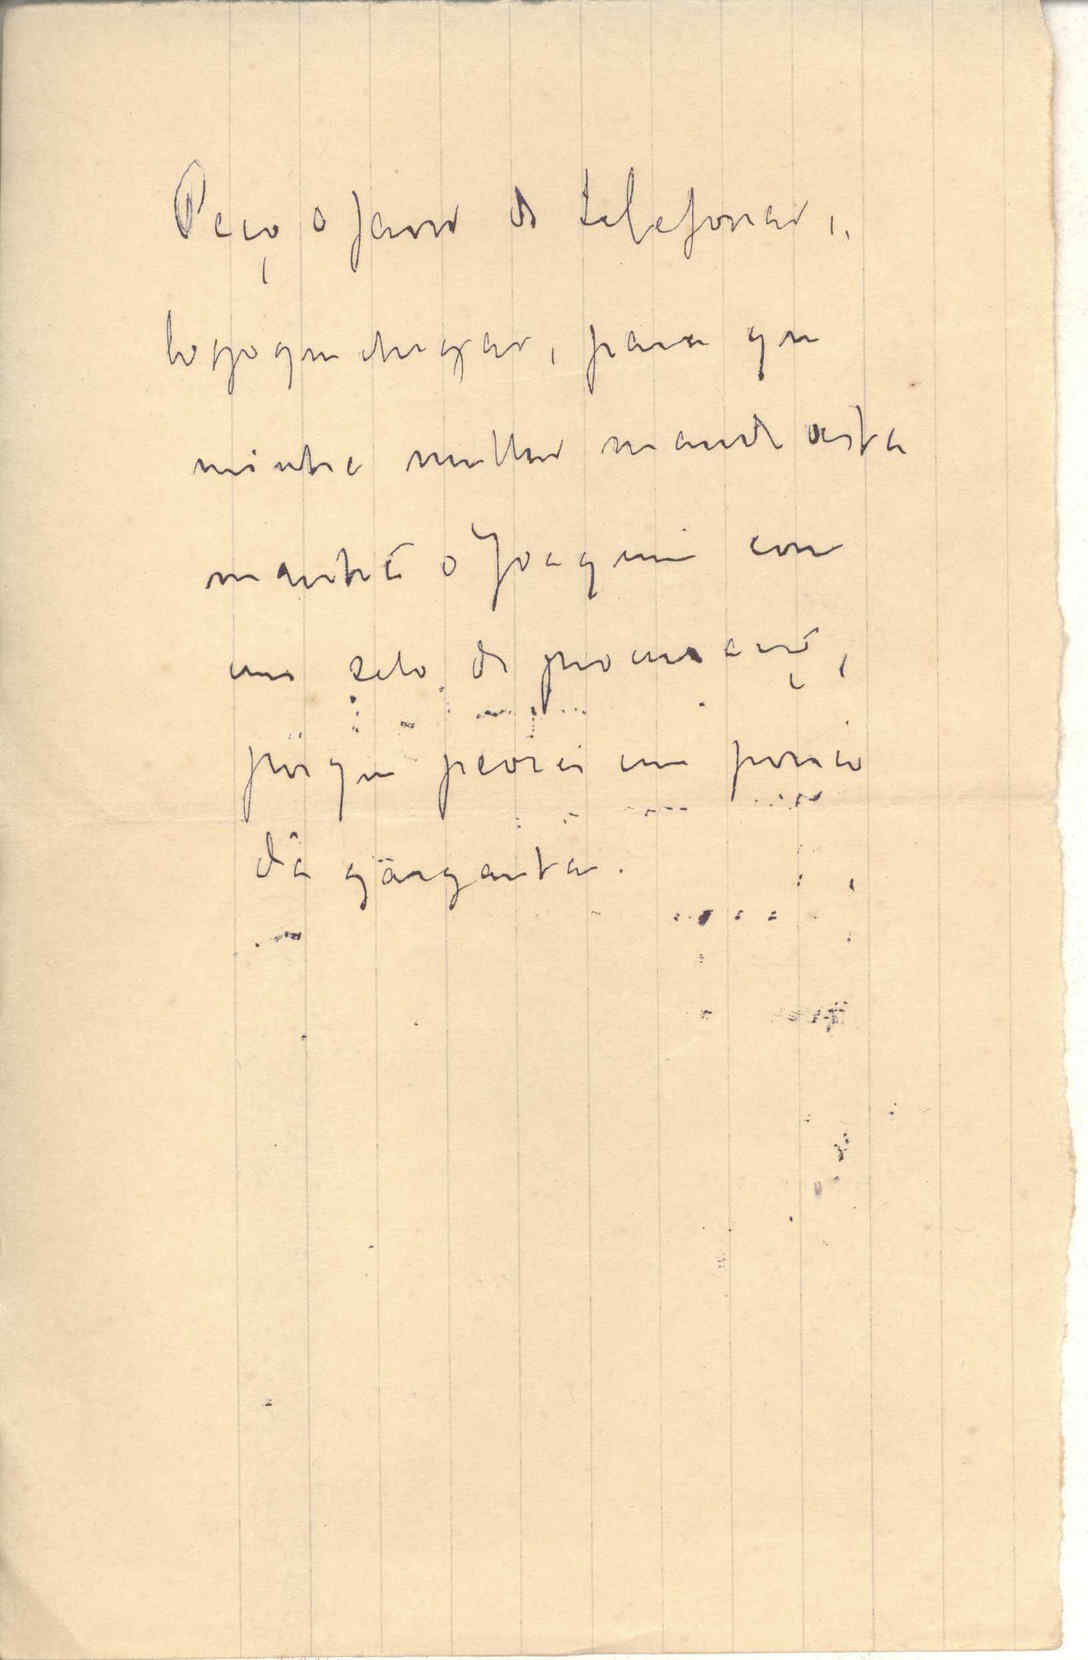 Peço o favor de telefonar,
logo que chegar, para que
minha mulher mande esta
manhã o Joaquim com
um selo de procuração,
porque peorei um pouco
da garganta.